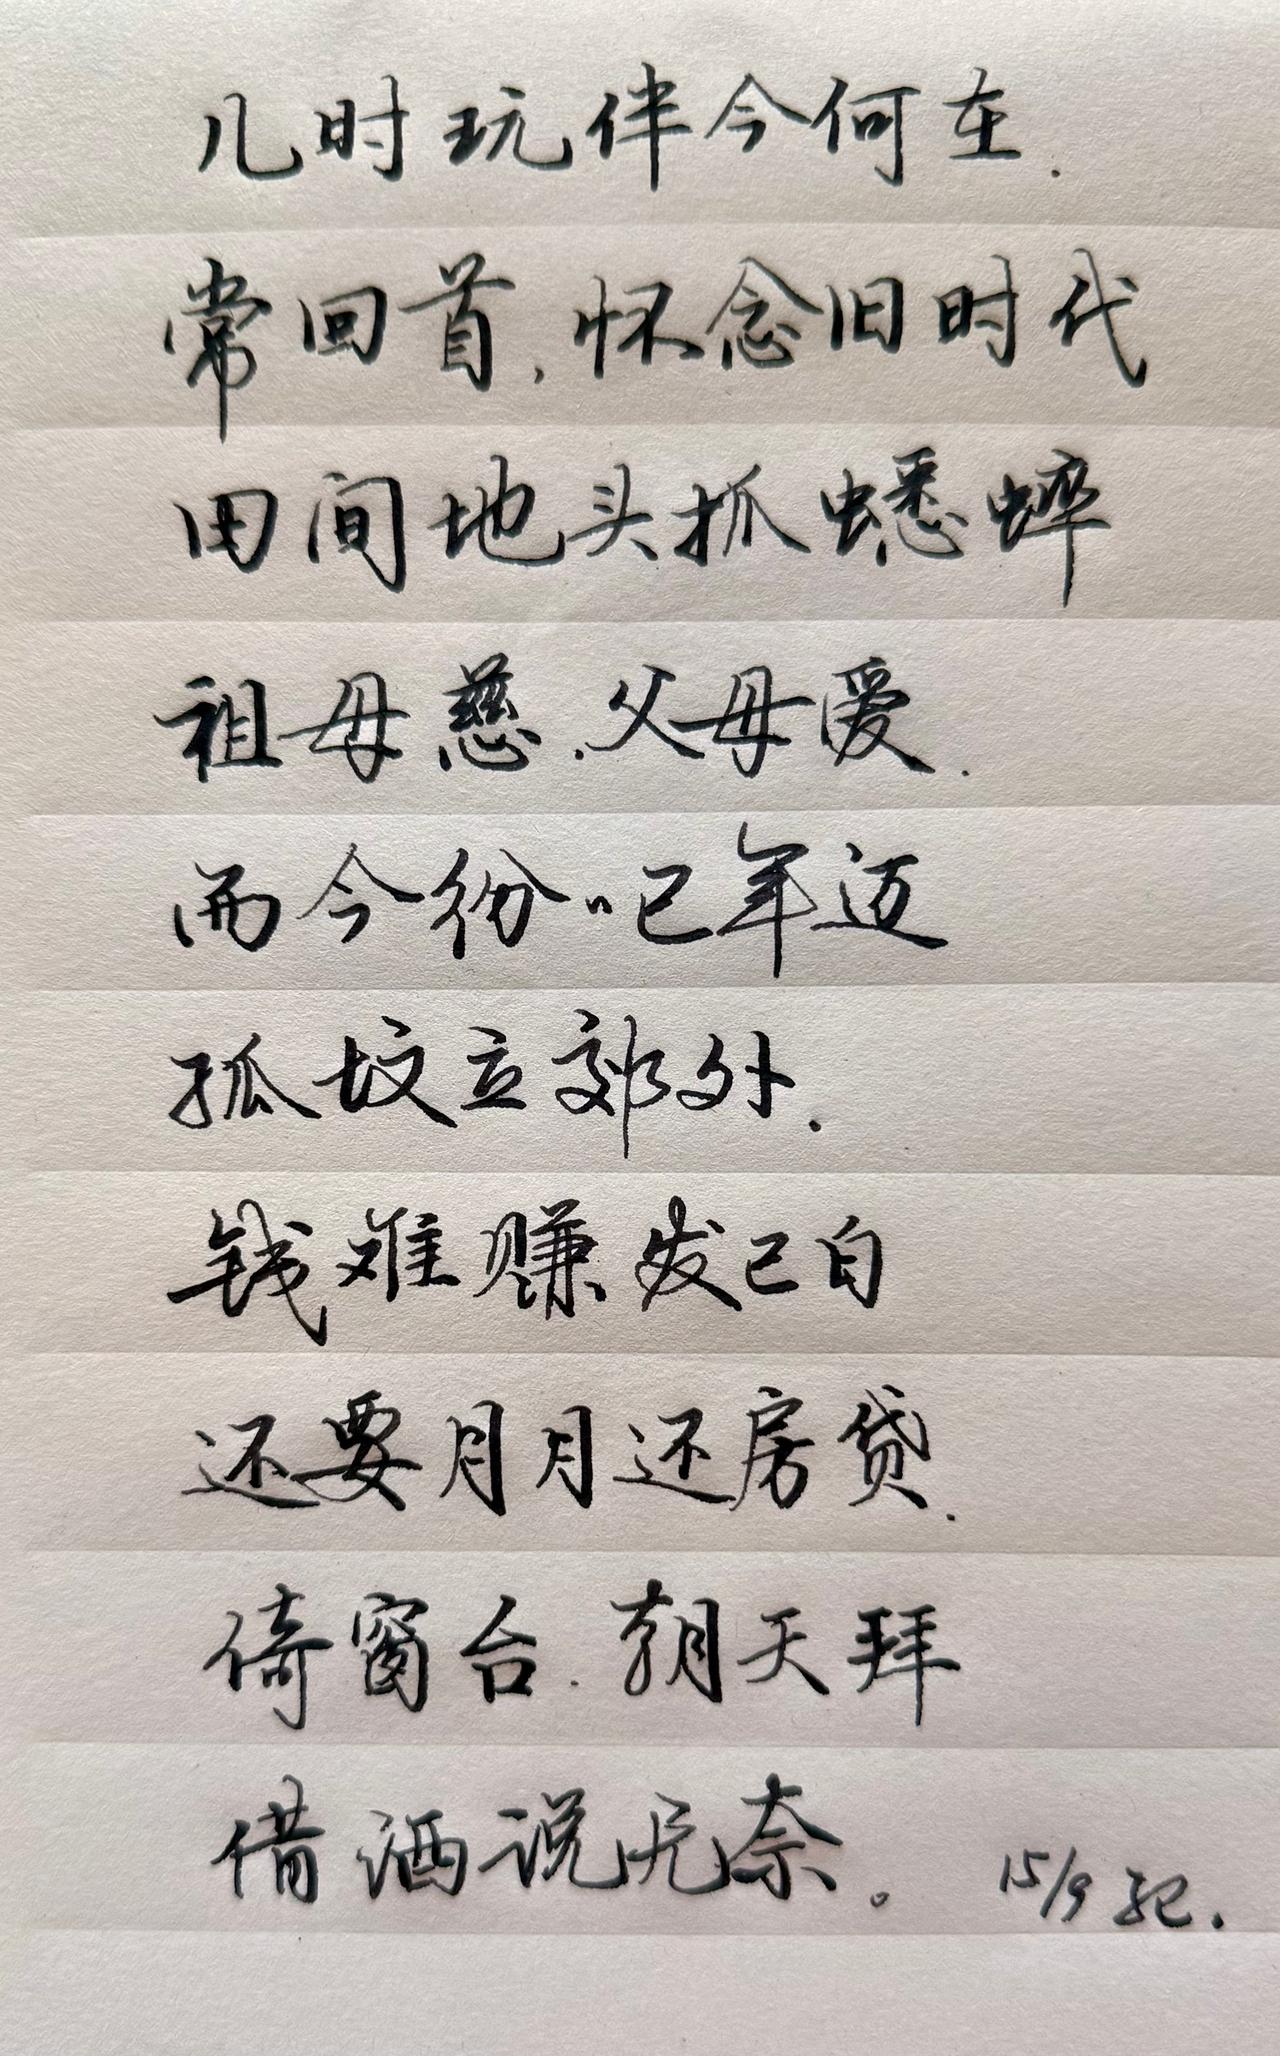 儿时玩伴今何在.
常回首,怀念旧时代
田间地头抓蟋蟀
祖母慈.父母爱.
而今纷〃已年迈
孤坟立郊外.
钱难赚发已白
还要月月还房贷.
倚窗台.朝天拜
借酒说无奈。 15/9记.